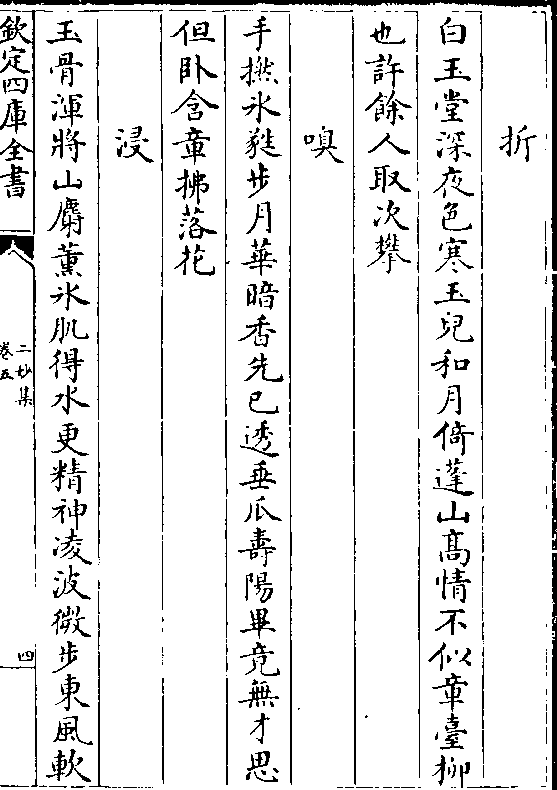 折
白玉堂深夜色寒玉兒和月倚蓬山髙情不似章臺柳
也許餘人取次攀
嗅
手撚氷蕤步月華暗香先已透垂瓜壽陽畢竟無才思
但卧含章拂落花
浸
玉骨渾將山麝薰氷肌得水更精神凌波微步東風軟
欽定四庫全書
二妙集
卷五
四